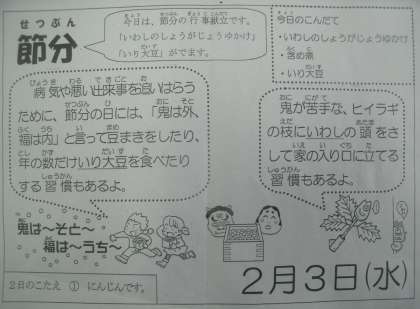 せつぶん
節分
今日は、節分の行事献立です。
「いわしのしょうがじょうゆかけ」
「いり大豆」がでます。
今日のこんだて
・いわしのしょうがじょうゆかけ
・含め煮
・いり大豆
病気や悪い出来事を追いはらう
ために、節分の日には、「鬼は外、
福は内」と言って豆まきをしたり、
年の数だけいり大豆を食べたり
する習慣もあるよ。
鬼が苦手な、ヒイラギ
の枝にいわしの頭をさ
して家の入り口に立てる
習慣もあるよ。
鬼は〜そと〜
福は〜うち〜
2月3日(水)
2日のこたえ ① にんじんです。